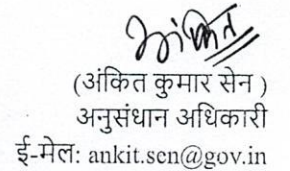 अंकित
(अंकित कुमार सेन )
अनुसंधान अधिकारी
ई-मेल: ankit.sen@gov.in